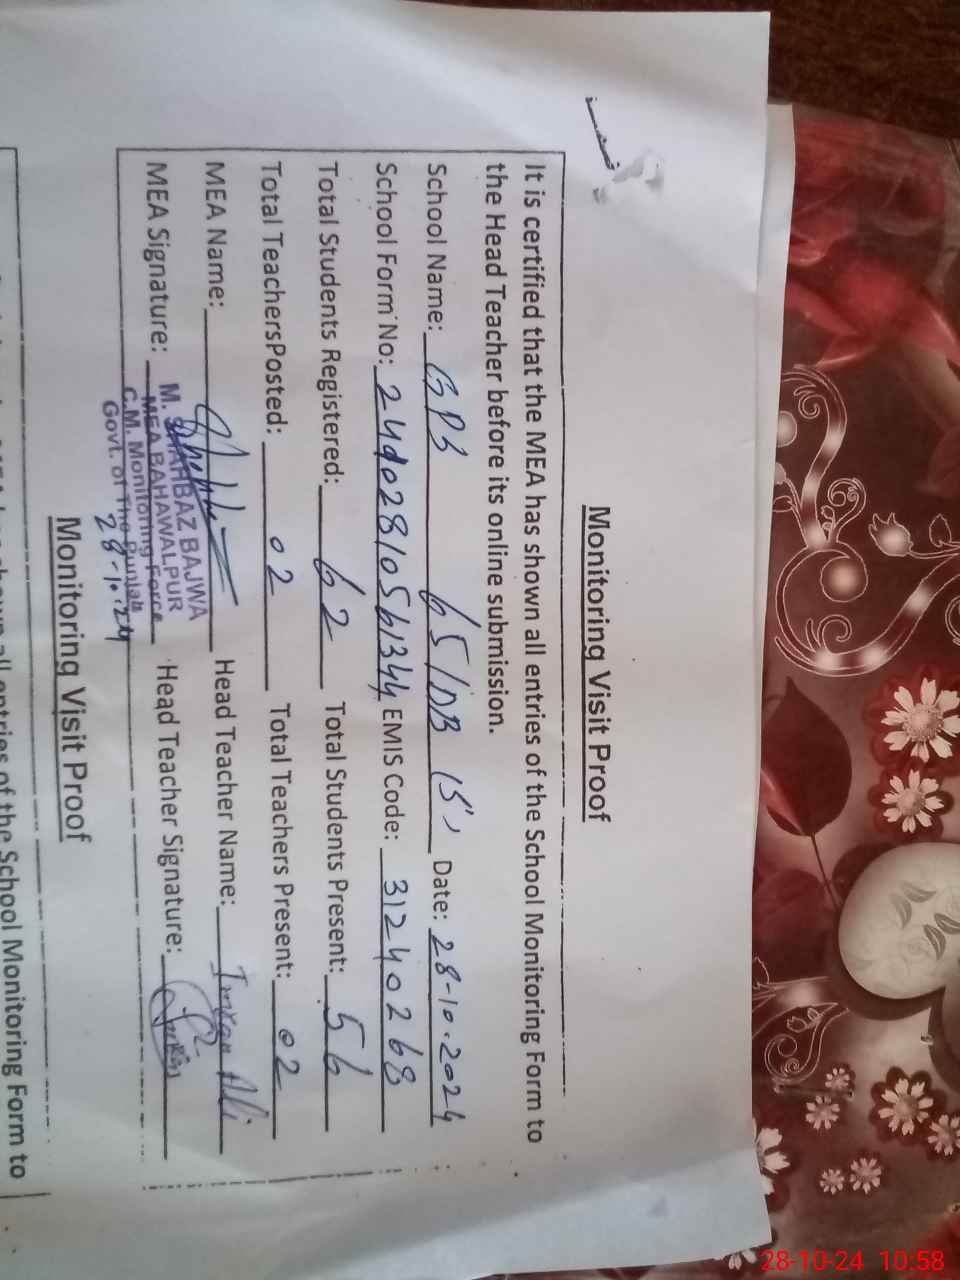 Monitoring Visit Proof
It is certified that the MEA has shown all entries of the School Monitoring Form to
the Head Teacher before its online submission.
School Name: GPS 65/DB Date: 28-10-2024
School Form No: EMIS Code: 31240268
Total Students Registered: 62 Total Students Present: 56
Total TeachersPosted: 02 Total Teachers Present: 02
MEA Name: Head Teacher Name: Imran Ali
MEA Signature: Head Teacher Signature:
M. SHAHBAZ BAJWA
MEA BAHAWALPUR
C.M. Monitoring Force
Govt. of The Punjab
28-10-24
Monitoring Visit Proof
entries of the School Monitoring Form to
28-10-24 10:58